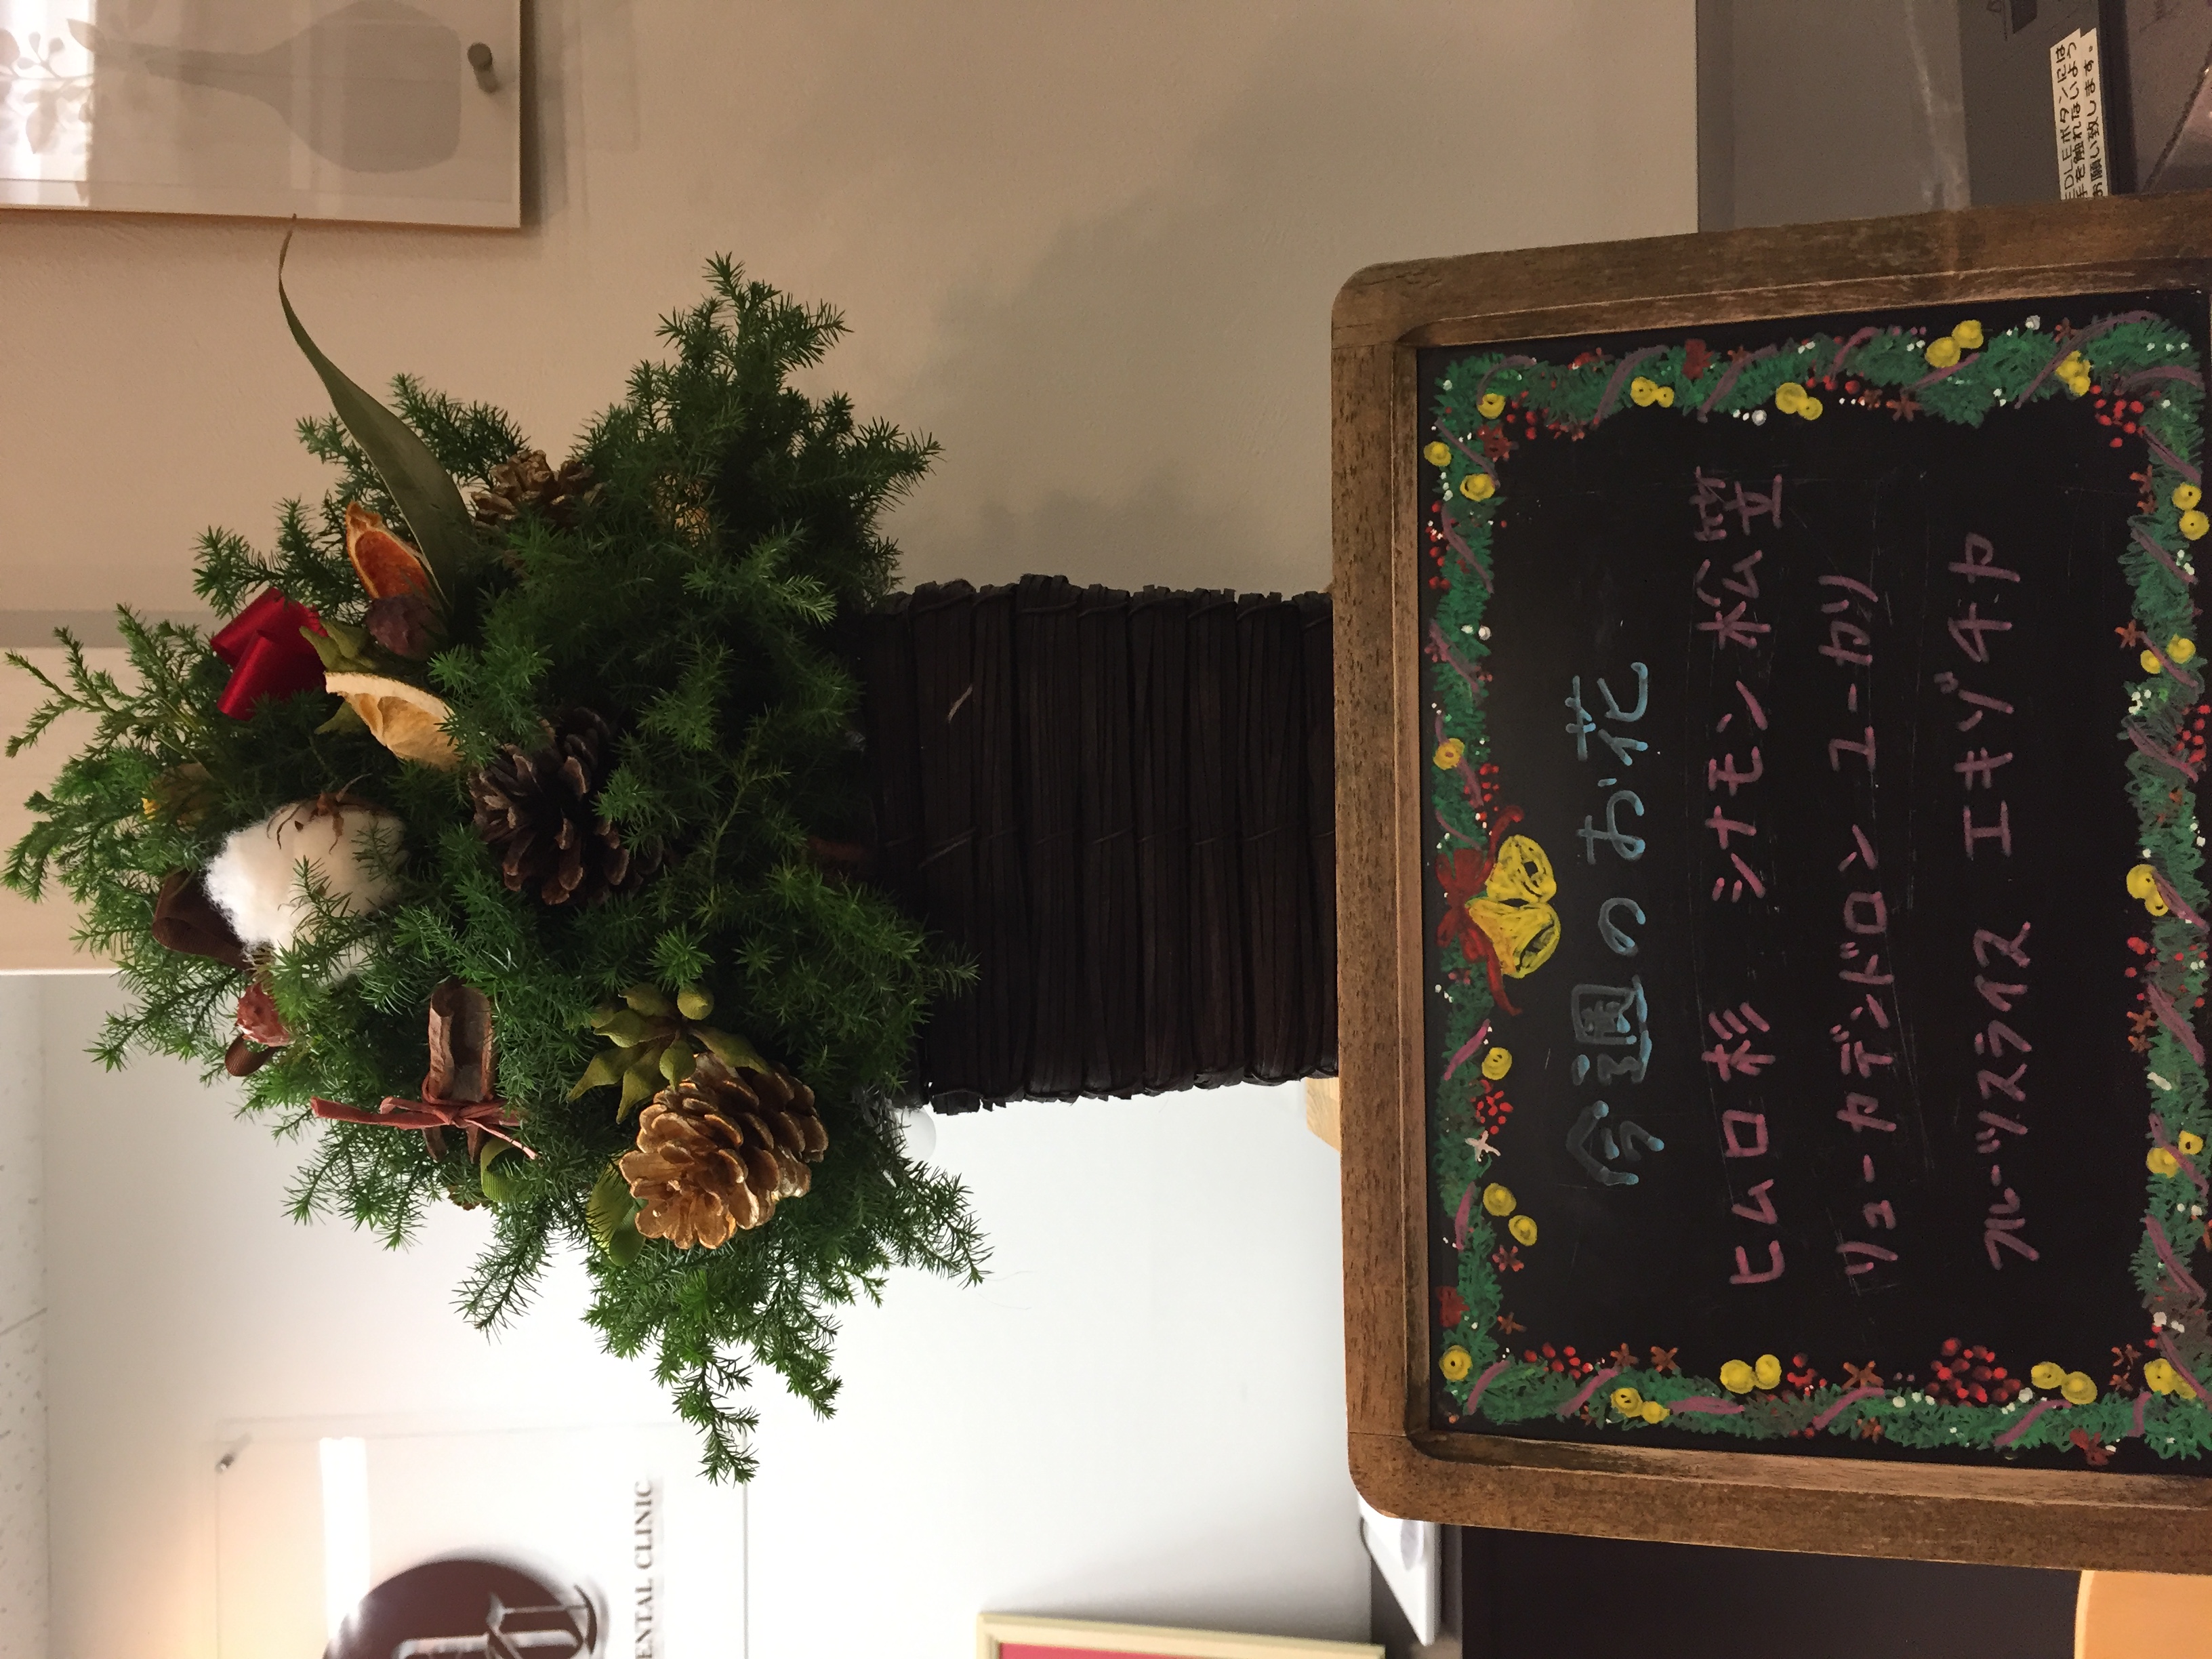 今週のお花
ヒムロ杉 シナモン 松笠
リューカデンドロン ユーカリ
フルーツスライス エキゾチカ
EDLEボタンには
手を触れないよう
お願い致します。
ENTAL CLINIC